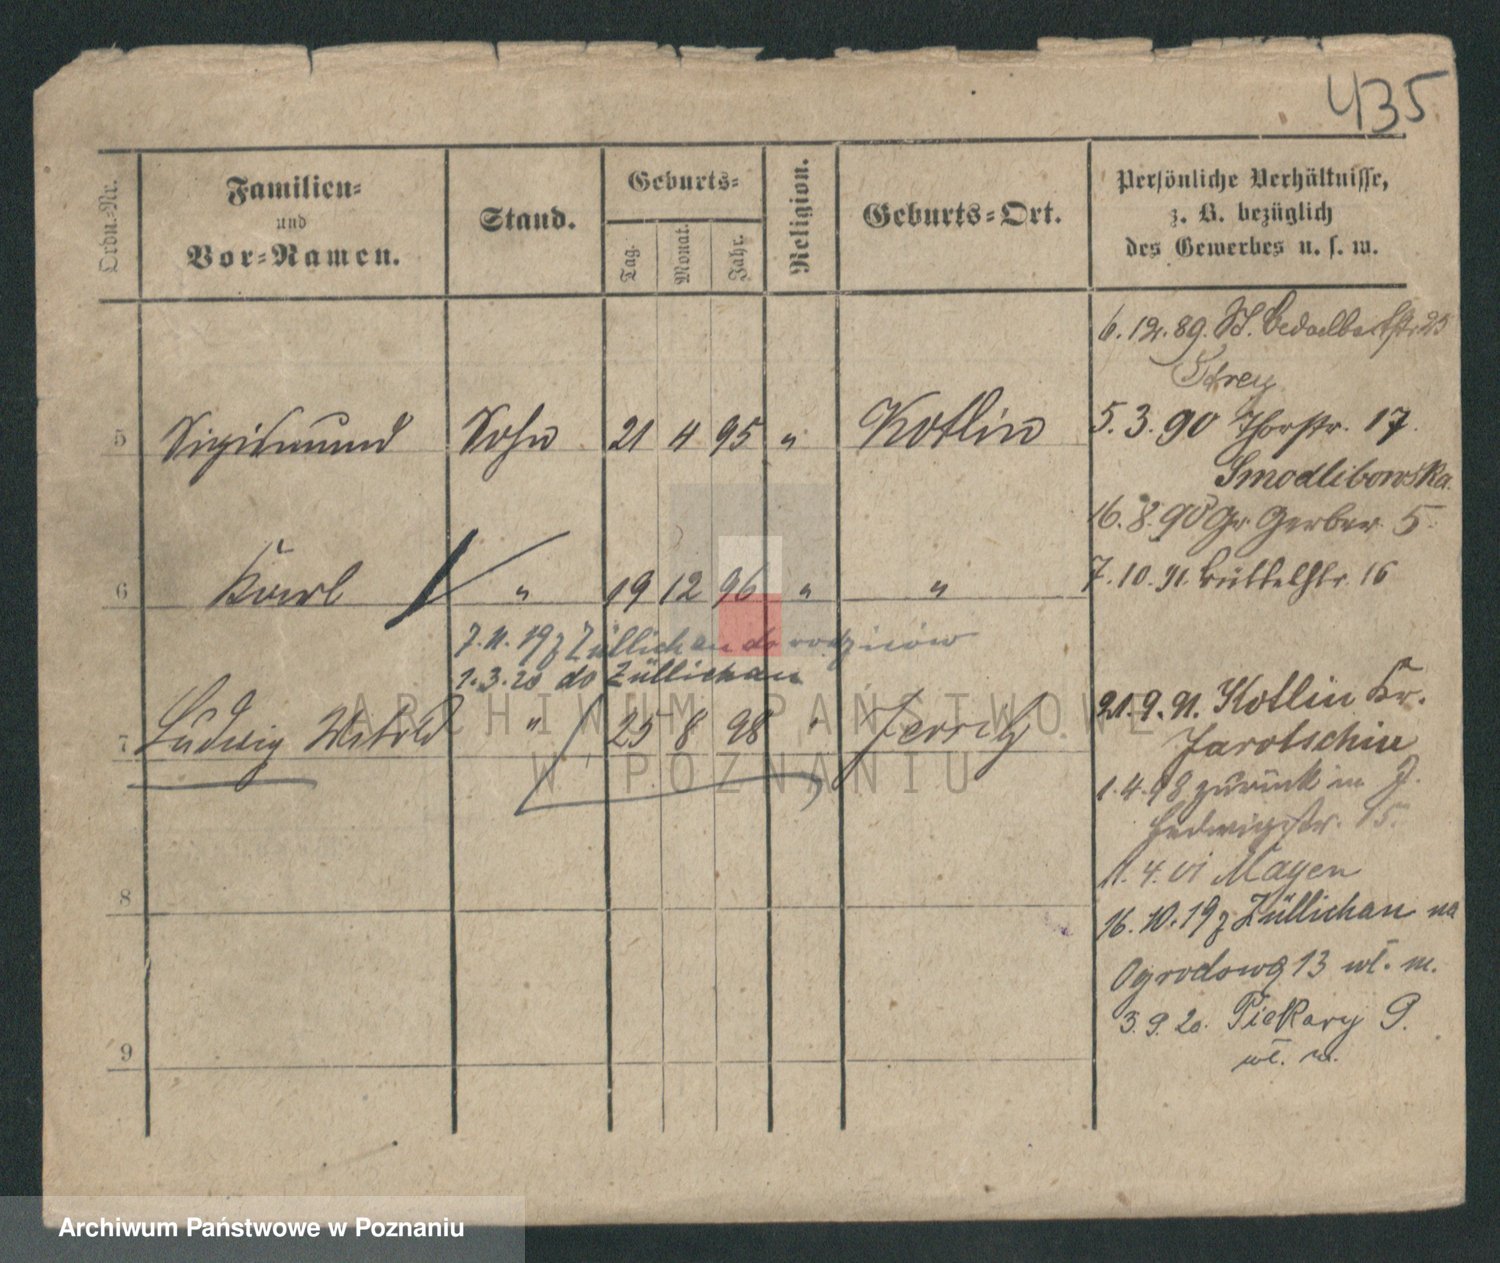 435
Ordn.-Nr.
Familien- und Vor-Namen.
Stand.
Geburts-
Tag. Monat. Jahr.
Religion.
Geburts-Ort.
Persönliche Verhältnisse,
z. B. bezüglich
des Gewerbes u. s. w.
6.12.89. St. Adalbertstr. 25
5 Sigismund Sohn 21 4 95 " Kotlin
5.3.90 Thorstr. 17.
Smodlibowska
16.8.90 Gr Gerber 5
6 Karl " 19 12 96 " "
7.10.91. Büttelstr. 16
7.11.19 z Züllichau do rodziców
1.3.20 do Züllichau
7 Ludwig Witold " 25 8 98 "
21.9.91. Kotlin Kr.
Jarotschin
1.4.98 zurück in J.
Hedwigstr. 15.
8
11.4.01 Mayen
16.10.19 z Züllichau na
Ogrodową 13 wł. m.
3.9.20. Piekary 9.
wł. m.
9
ARCHIWUM PAŃSTWOWE
W POZNANIU
Archiwum Państwowe w Poznaniu